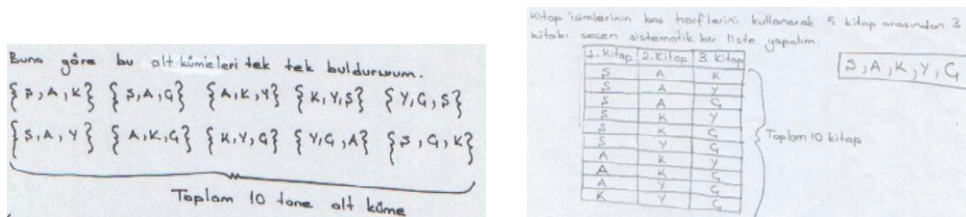 Buna göre bu alt kümeleri tek tek buldururum.
{S,A,K} {S,A,G} {A,K,Y} {K,Y,S} {Y,G,S}
{S,A,Y} {A,K,G} {K,Y,G} {Y,G,A} {S,G,K}
Toplam 10 tane alt küme
Kitap isimlerinin baş harflerini kullanarak 5 kitap arasından 3
kitabı seçen sistematik bir liste yapalım.
S, A, K, Y, G
1. Kitap 2. Kitap 3. Kitap
S A K
S A Y
S A G
S K Y
S K G
S Y G
A K Y
A K G
A Y G
K Y G
Toplam 10 kitap